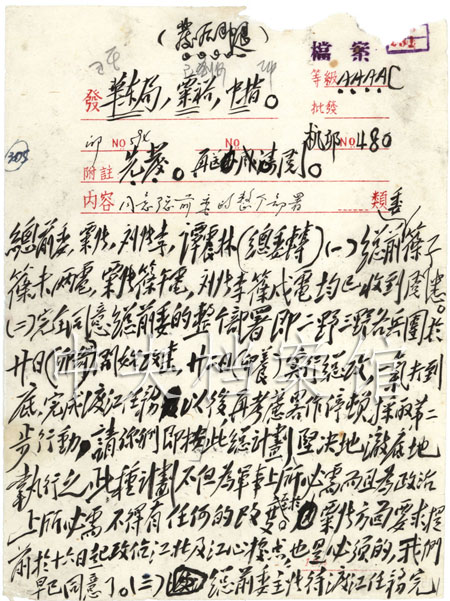 檔案
等級 AAAAC
發 華東局,粟裕,中情。
批發
NO NO 機部NO480
附註 先發。
內容 同意總前委的整个部署
類
總前委,粟張,刘张李,譚震林(總委轉)(一)總前篠子
篠未两電,粟張篠午電,刘张李篠戌電均已收到阅悉。
(二)完全同意總前委的整个部署,即二野三野各兵團於
廿日(卯哿)開始攻击,廿二日(卯養)实行總攻,一氣打到
底,完成渡江任務以後,再考慮略作停頓,採取第二
步行動,請你們即按此總計劃坚决地徹底地
執行之,此種計劃不但為軍事上所必需,而且為政治
上所必需,不得有任何的改變。粟張方面要求提
前於十六日起攻佔江北及江心據点也是必须的,我們
早已同意了。(三)總前委主张待渡江任務完
中央档案馆